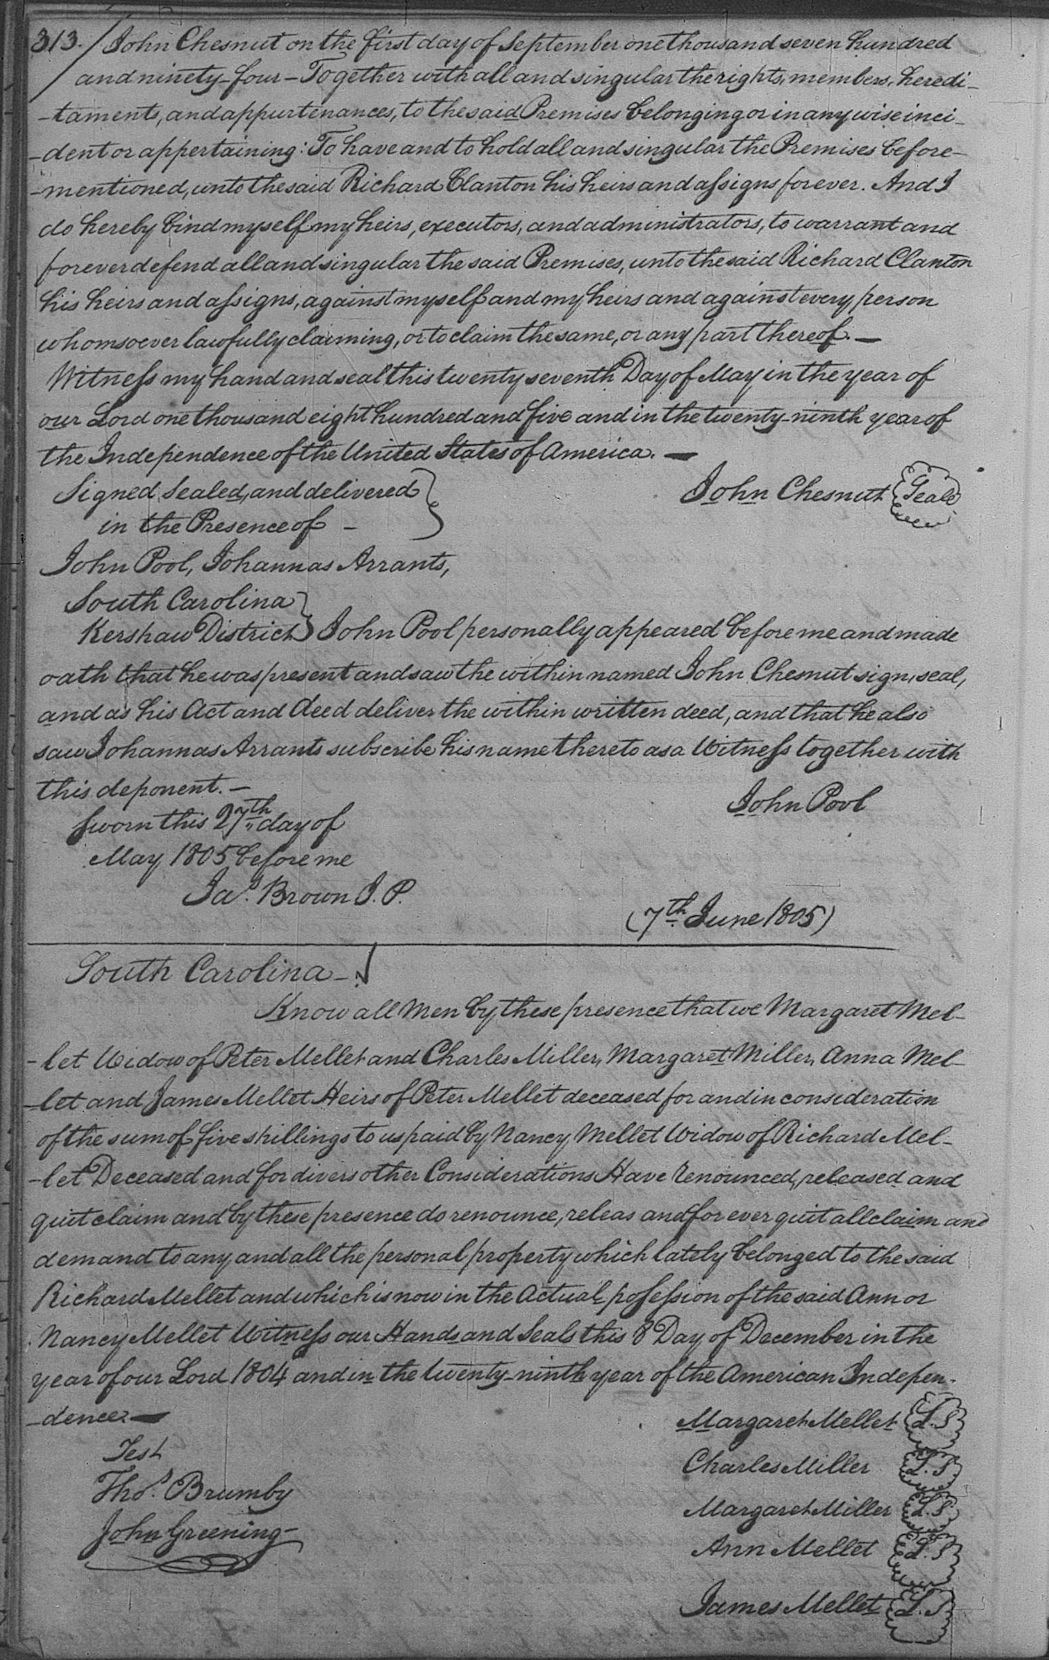 313. / John Chesnut on the first day of September one thousand seven hundred
and ninety-four - Together with all and singular the rights, members, heredi-
-taments, and appurtenances, to the said Premises belonging or in any wise inci-
-dent or appertaining: To have and to hold all and singular the Premises before-
-mentioned, unto the said Richard Clanton his heirs and assigns forever. And I
do hereby bind myself my heirs, executors, and administrators, to warrant and
forever defend all and singular the said Premises, unto the said Richard Clanton
his heirs and assigns, against myself and my heirs and against every person
whomsoever lawfully claiming, or to claim the same, or any part thereof. -
Witness my hand and seal this twenty seventh Day of May in the year of
our Lord one thousand eight hundred and five and in the twenty-ninth year of
the Independence of the United States of America. -
Signed, Sealed, and delivered
in the Presence of -
John Chesnut Seal
John Pool, Johannas Arrants,
South Carolina
Kershaw District John Pool personally appeared before me and made
oath that he was present and saw the within named John Chesnut sign, seal,
and as his Act and deed deliver the within written deed, and that he also
saw Johannas Arrants subscribe his name thereto as a Witness together with
this deponent. -
John Pool
Sworn this 27th day of
May 1805 before me
Jas. Brown J. P.
(7th June 1805)
South Carolina -
Know all Men by these presence that we Margaret Mel-
-let Widow of Peter Mellet and Charles Miller, Margaret Miller, Anna Mel-
-let and James Mellet Heirs of Peter Mellet deceased for and in consideration
of the sum of five shillings to us paid by Nancy Mellet Widow of Richard Mel-
-let Deceased and for divers other Considerations Have renounced, released and
quit claim and by these presence do renounce, releas and for ever quit all claim and
demand to any and all the personal property which lately belonged to the said
Richard Mellet and which is now in the Actual possession of the said Ann or
Nancy Mellet Witness our Hands and Seals this 8 Day of December in the
year of our Lord 1804 and in the twenty-ninth year of the American Indepen-
-dence. -
Margaret Mellet L.S
Test
Charles Miller L.S
Thos. Brumby
Margaret Miller L.S
John Greening
Ann Mellet L.S
James Mellet L.S